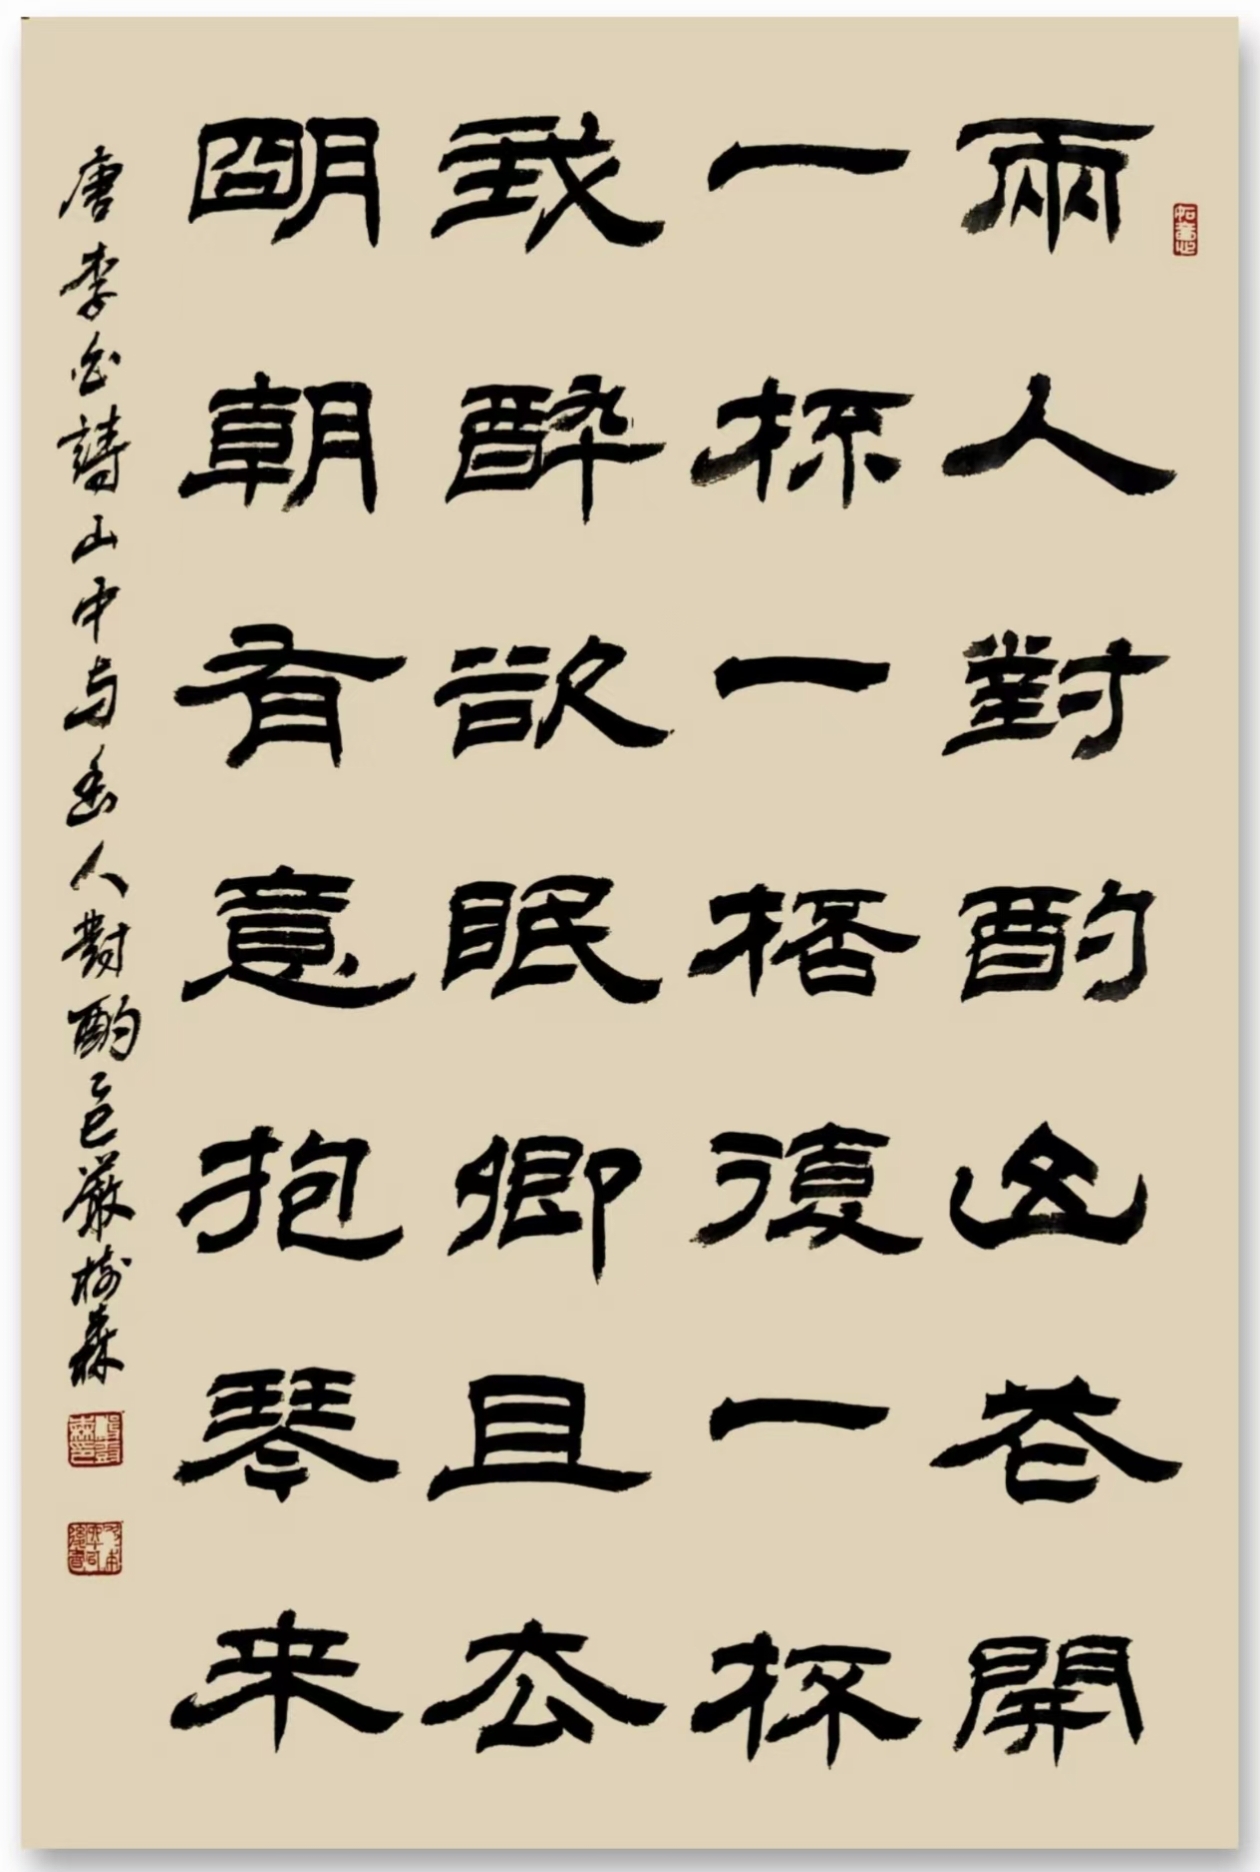 兩人對酌山花開
一杯一桮復一杯
我醉欲眠卿且去
朙朝有意抱琴来
唐李白詩山中与幽人對酌乙巳嚴樹森